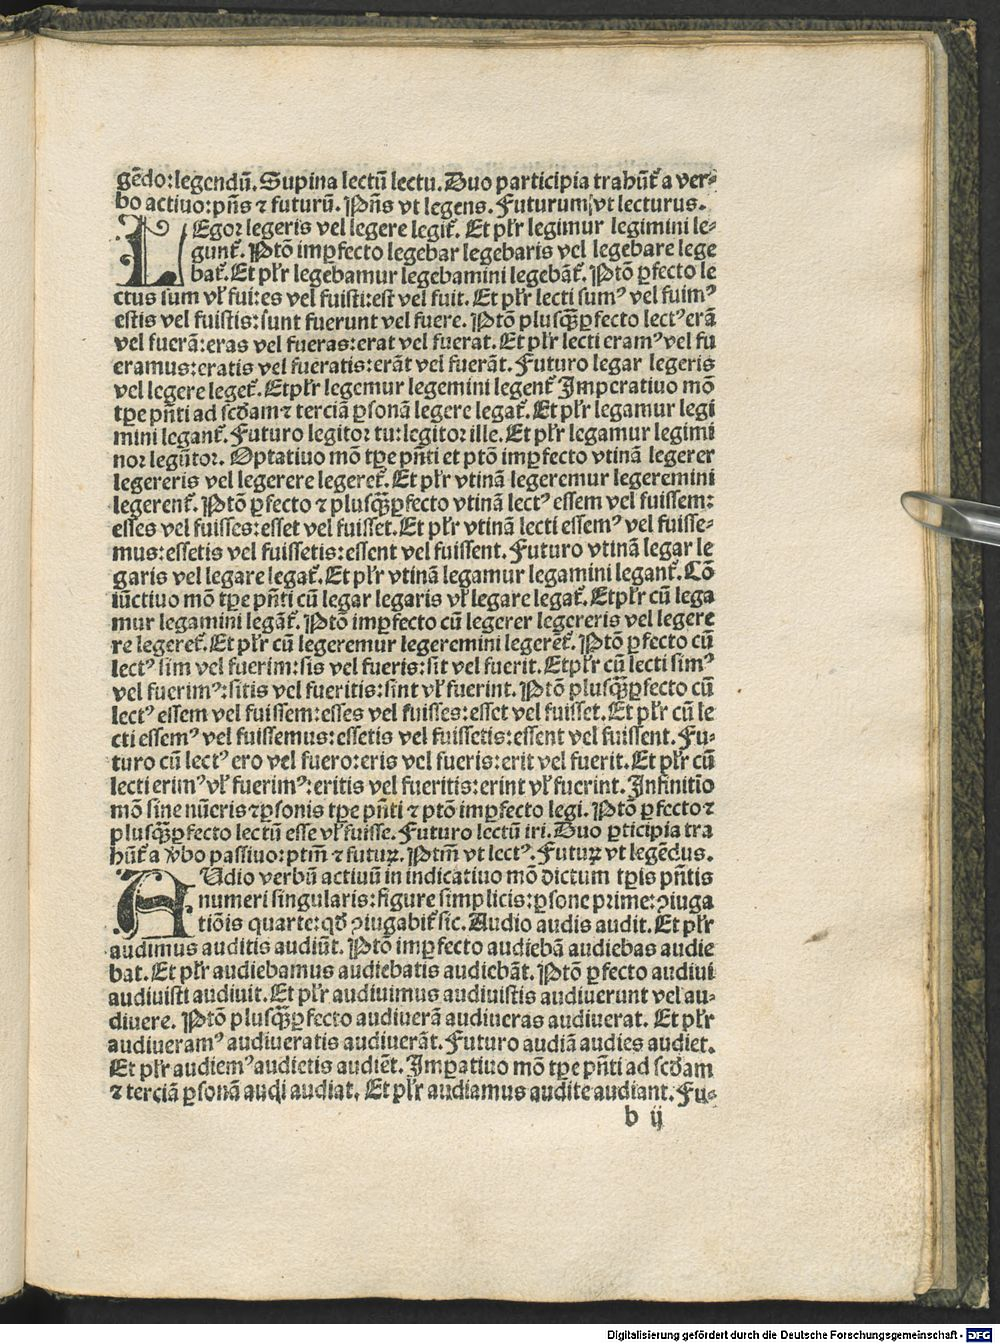 gēdo:legendū. Supina lectū lectu. Duo participia trahūt᷑ a ver⸗
bo actiuo:pn̄s ⁊ futurū. Pn̄s vt legens. Futurum vt lecturus.
LEgor legeris vel legere legit᷑. Et pl̄r legimur legimini le⸗
gunt᷑. Ptō imꝑfecto legebar legebaris vel legebare lege
bat᷑. Et pl̄r legebamur legebamini legebāt᷑. Ptō ꝑfecto le
ctus sum vl̄ fui:es vel fuisti:est vel fuit. Et pl̄r lecti sumꝰ vel fuimꝰ
estis vel fuistis:sunt fuerunt vel fuere. Ptō plusq̄ꝑfecto lectꝰ erā
vel fuerā:eras vel fueras:erat vel fuerat. Et pl̄r lecti eramꝰ vel fu
eramus:eratis vel fueratis:erāt vel fuerāt. Futuro legar legeris
vel legere leget᷑. Et pl̄r legemur legemini legent᷑ Imperatiuo mō
tꝑe pn̄ti ad scd̄am ⁊ terciā ꝑsonā legere legat᷑. Et pl̄r legamur legi
mini legant᷑. Futuro legitor tu:legitor ille. Et pl̄r legamur legimi
nor legūtor. Optatiuo mō tꝑe pn̄ti et ptō imꝑfecto vtinā legerer
legereris vel legerere legeret᷑. Et pl̄r vtinā legeremur legeremini
legerent᷑. Ptō ꝑfecto ⁊ plusq̄ꝑfecto vtinā lectꝰ essem vel fuissem:
esses vel fuisses:esset vel fuisset. Et pl̄r vtinā lecti essemꝰ vel fuisse⸗
mus:essetis vel fuissetis:essent vel fuissent. Futuro vtinā legar le
garis vel legare legat᷑. Et pl̄r vtinā legamur legamini legant᷑. Cō
iūctiuo mō tꝑe pn̄ti cū legar legaris vl̄ legare legat᷑. Et pl̄r cū lega
mur legamini legāt᷑. Ptō imꝑfecto cū legerer legereris vel legere
re legeret᷑. Et pl̄r cū legeremur legeremini legerēt᷑. Ptō ꝑfecto cū
lectꝰ sim vel fuerim:sis vel fueris:sit vel fuerit. Et pl̄r cū lecti simꝰ
vel fuerimꝰ:sitis vel fueritis:sint vl̄ fuerint. Ptō plusq̄ꝑfecto cū
lectꝰ essem vel fuissem:esses vel fuisses:esset vel fuisset. Et pl̄r cū le
cti essemꝰ vel fuissemus:essetis vel fuissetis:essent vel fuissent. Fu⸗
turo cū lectꝰ ero vel fuero:eris vel fueris:erit vel fuerit. Et pl̄r cū
lecti erimꝰ vl̄ fuerimꝰ:eritis vel fueritis:erint vl̄ fuerint. Infinitio
mō sine nūeris ⁊ ꝑsonis tꝑe pn̄ti ⁊ ptō imꝑfecto legi. Ptō ꝑfecto ⁊
plusq̄ꝑfecto lectū esse vl̄ fuisse. Futuro lectū iri. Duo ꝑticipia tra
hūt᷑ a v̄bo passiuo:ptm̄ ⁊ futuꝝ. Ptm̄ vt lectꝰ. Futuꝝ vt legēdus.
AUdio verbū actiuū in indicatiuo mō dictum tꝑis pn̄tis
numeri singularis:figure simplicis:ꝑsone prime:ꝯiuga
tiōis quarte:qd̄ ꝯiugabit᷑ sic. Audio audis audit. Et pl̄r
audimus auditis audiūt. Ptō imꝑfecto audiebā audiebas audie
bat. Et pl̄r audiebamus audiebatis audiebāt. Ptō ꝑfecto audiui
audiuisti audiuit. Et pl̄r audiuimus audiuistis audiuerunt vel au⸗
diuere. Ptō plusq̄ꝑfecto audiuerā audiueras audiuerat. Et pl̄r
audiueramꝰ audiueratis audiuerāt. Futuro audiā audies audiet.
Et pl̄r audiemꝰ audietis audiēt. Imꝑatiuo mō tꝑe pn̄ti ad scd̄am
⁊ terciā ꝑsonā audi audiat. Et pl̄r audiamus audite audiant. Fu⸗
b ij
Digitalisierung gefördert durch die Deutsche Forschungsgemeinschaft - DFG